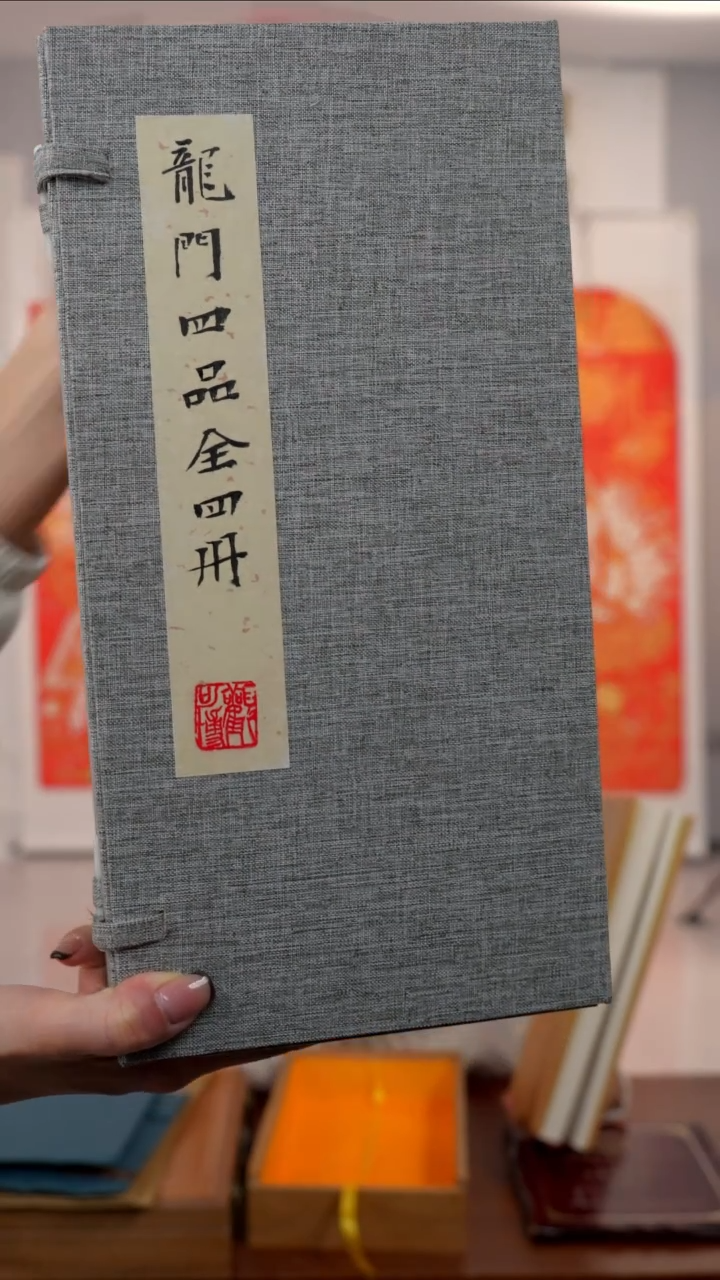 龍門四品全四冊